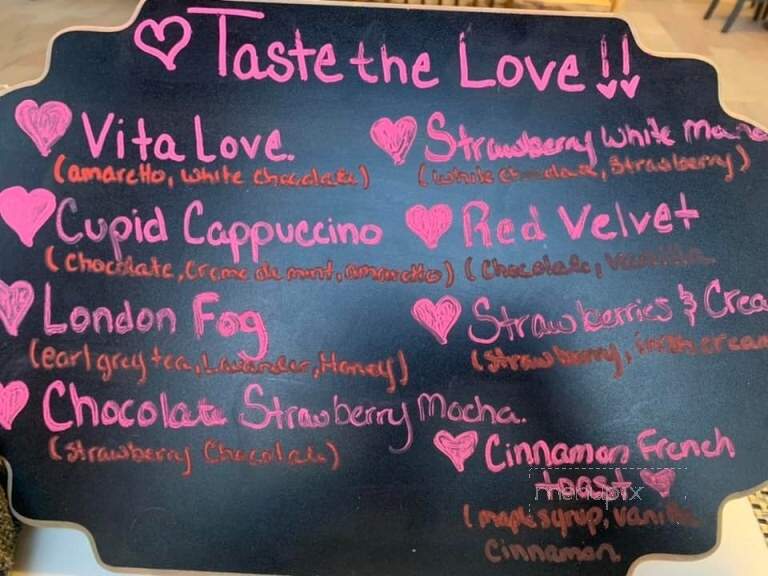 Taste the Love!!
Vita Love.
(amaretto, white chocolate)
Cupid Cappuccino
(Chocolate, Creme de mint, amaretto)
London Fog
(earl grey tea, Lavender, Honey)
Chocolate Strawberry Mocha.
(Strawberry Chocolate)
Strawberry White
(white chocolate, Strawberry)
Red Velvet
(Chocolate, Vanilla
Strawberries & Crea
(Strawberry, irish cream
Cinnamon French
toast
(maple syrup, vanilla
Cinnamon.
menupix